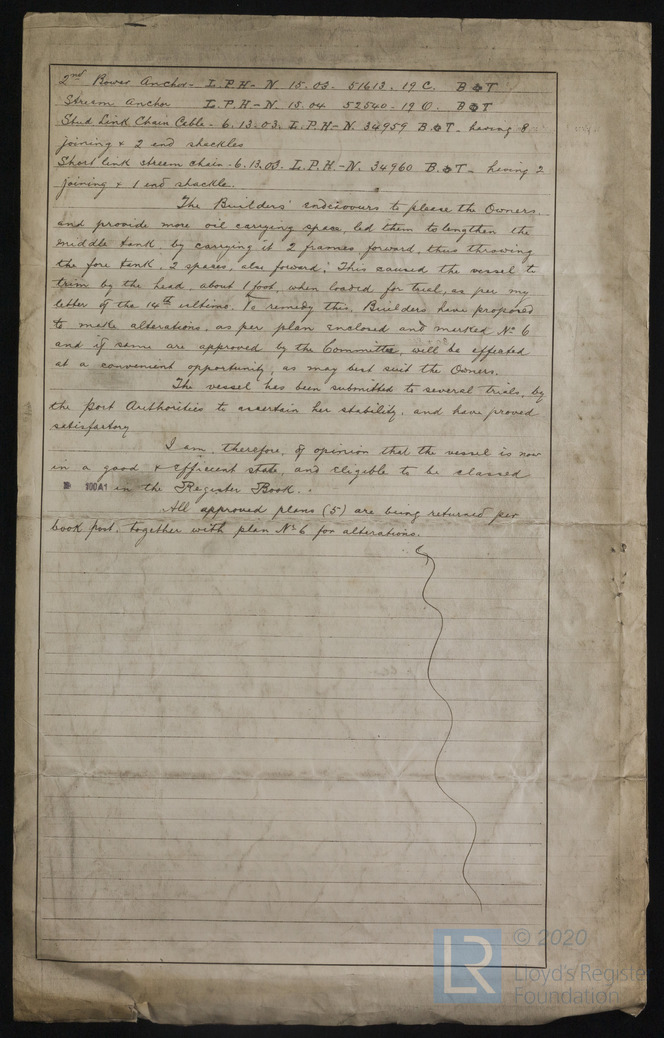 2nd Bower Anchor - L.P.H - N 15.03. 51613. 19 C. B o T
Stream Anchor L.P.H - N 15.04 52540 - 19 O. B o T
Stud Link Chain Cable - 6.13.03. L.P.H - N. 34959 B o T - having 8
joining & 2 end shackles
Short link stream chain - 6.13.03. L.P.H. - N. 34960 B. o T - having 2
joining & 1 end shackle.
The Builders' endeavours to please the Owners
and provide more oil carrying space, led them to lengthen the
middle tank, by carrying it 2 frames forward, thus throwing
the fore tank, 2 spaces, also forward; This caused the vessel to
trim by the head, about 1 foot, when loaded for trial, as per my
letter of the 14th ultimo. To remedy this, Builders have proposed
to make alterations, as per plan enclosed and marked No 6
and if same are approved by the Committee, will be effected
at a convenient opportunity, as may best suit the Owners.
The vessel has been submitted to several trials, by
the Port Authorities to ascertain her stability, and have proved
satisfactory
I am, therefore, of opinion that the vessel is now
in a good & efficient state, and eligible to be classed
✠ 100A1 in the Register Book.
All approved plans (5) are being returned per
book post, together with plan No 6 for alterations.
LR © 2020
Lloyd's Register
Foundation